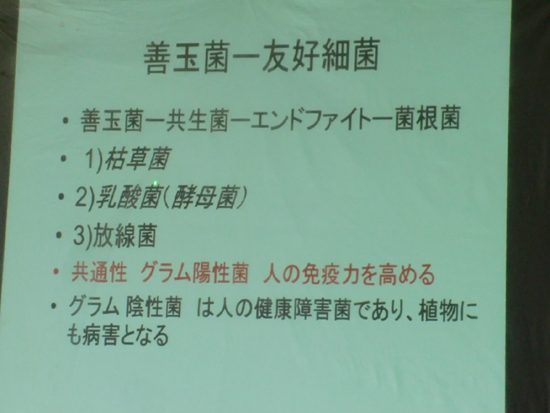 善玉菌ー友好細菌
・善玉菌ー共生菌ーエンドファイトー菌根菌
・ 1)枯草菌
・2)乳酸菌(酵母菌)
・3)放線菌
・ 共通性 グラム陽性菌 人の免疫力を高める
・グラム 陰性菌 は人の健康障害菌であり、植物に
も病害となる